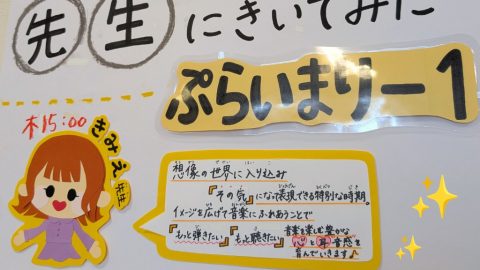 先生にきいてみた
ぷらいまりー1
木15:00
きみえ先生
想像の世界に入り込み
『その気』になって表現できる特別な時期。
イメージを広げて音楽にふれあうことで
『もっと弾きたい』『もっと聴きたい』音楽を楽しむ豊かな
心と耳、音感を
育んでいきます♪